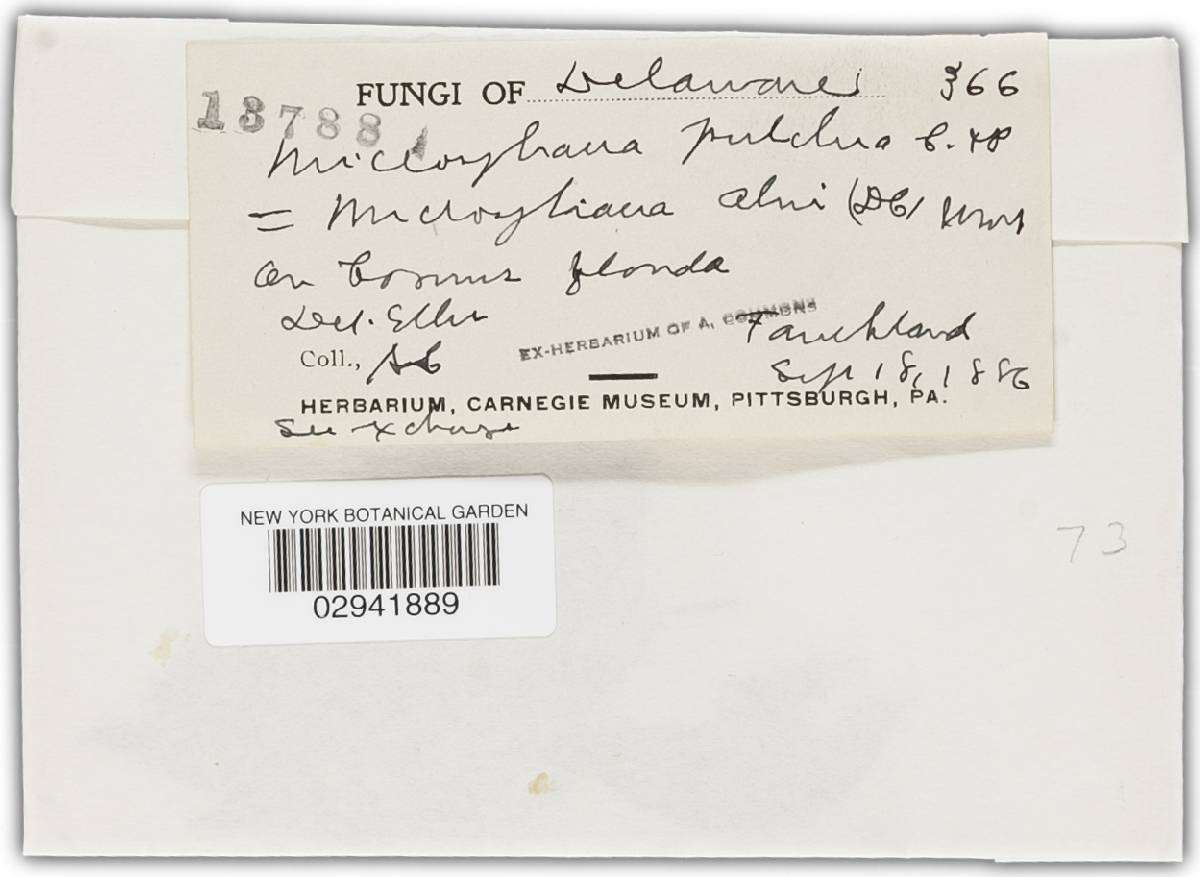 FUNGI OF Delaware 366
13788
Microsphaera pulchra C. & P
= Microsphaera alni (DC) Wint
on Cornus florida
Det. Ellis
EX-HERBARIUM OF A. COMMONS
Faulkland
Coll., AC
Sept 18, 1886
HERBARIUM, CARNEGIE MUSEUM, PITTSBURGH, PA.
See exchange
NEW YORK BOTANICAL GARDEN
02941889
73